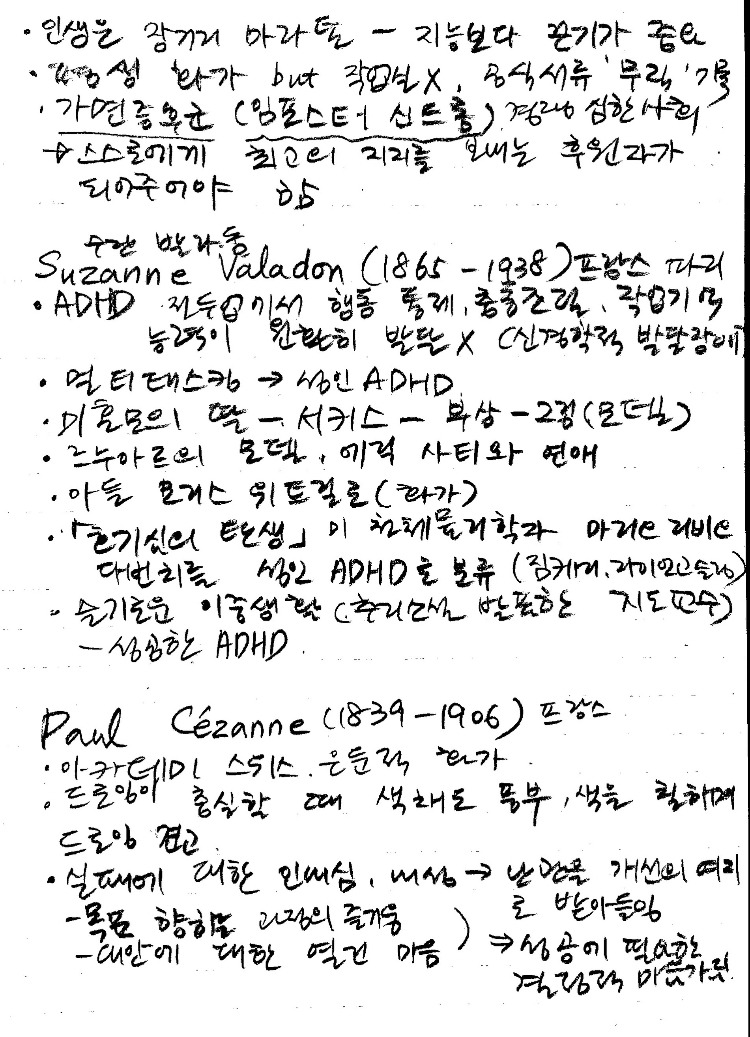 · 인생은 장거리 마라톤 - 지능보다 끈기가 중요
· 화가 but 작업실 X, 공식서류 '무직' 기록
· 가면증후군 (임포스터 신드롬) 겸손 심한 사회
→ 스스로에게 최고의 지지를 보내는 후원자가
되어주어야 함
수잔 발라동
Suzanne Valadon (1865 - 1938) 프랑스 파리
· ADHD 전두엽에서 행동 통제, 충동조절, 작업기억
능력이 원활히 발달 X (신경학적 발달장애)
· 멀티태스킹 → 성인 ADHD
· 미혼모의 딸 - 서커스 - 부상 - 그림 (모델)
· 르누아르의 모델, 에릭 사티와 연애
· 아들 모리스 위트릴로 (화가)
· 「호기심의 탄생」이 천체물리학과 마리오 리비오
다빈치를 성인 ADHD로 분류 (짐캐리, 라이언고슬링)
· 슬기로운 이중생활 (추리소설 발표하는 지도교수)
- 성공한 ADHD
Paul Cézanne (1839 - 1906) 프랑스
· 아카데미 스위스. 은둔적 화가
· 드로잉이 충실할 때 색채도 풍부, 색을 칠하며
드로잉 견고
· 실패에 대한 인내심, 내성 → 난관을 개선의 여지
로 받아들임
- 목표 향하는 과정의 즐거움
- 대안에 대한 열린 마음 ) ⇒ 성공에 필요한
결정적 마음가짐